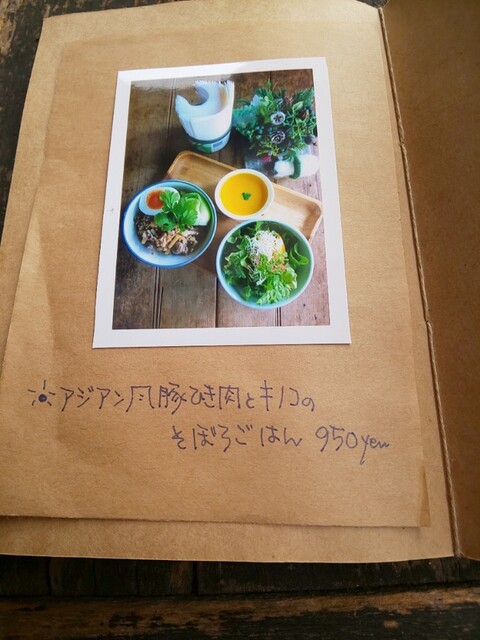 ☀アジアン風豚ひき肉とキノコの
そぼろごはん 950yen